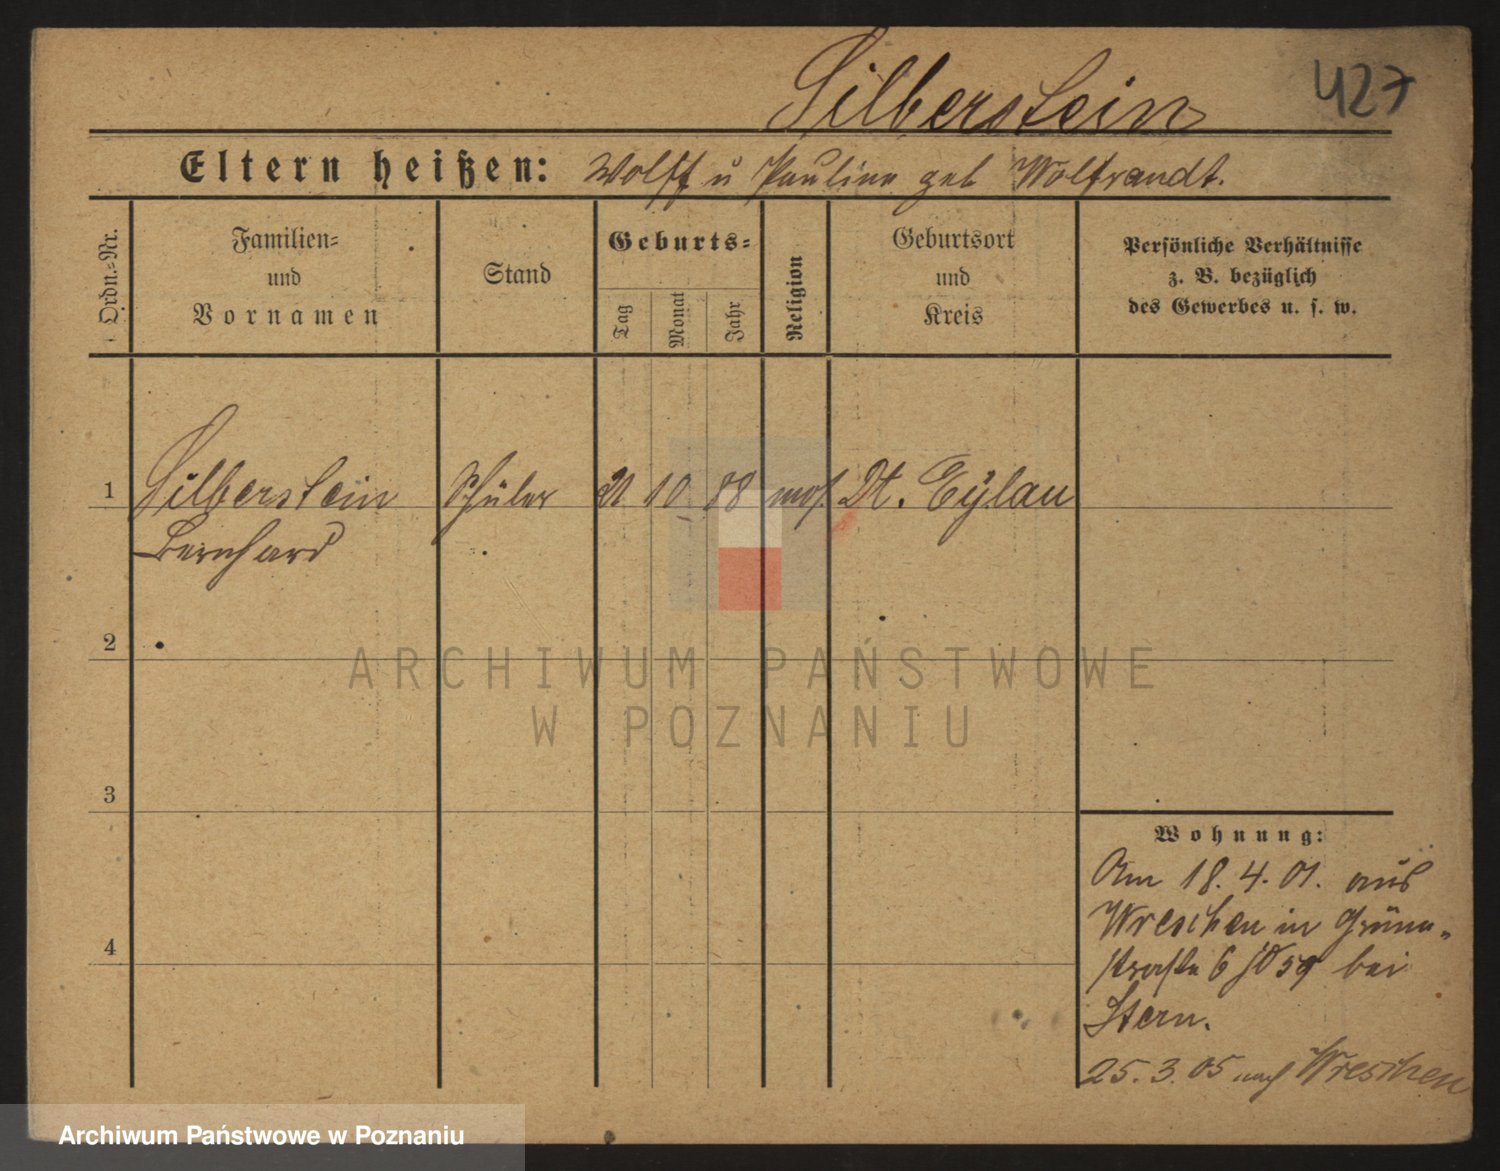 Silberstein
427
Eltern heißen: Wolff u Pauline geb Wolfrandt.
Ordn.-Nr.
Familien-
und
Vornamen
Stand
Geburts-
Tag
Monat
Jahr
Religion
Geburtsort
und
Kreis
Persönliche Verhältnisse
z. B. bezüglich
des Gewerbes u. s. w.
1 Silberstein Schüler 21 10 88 mos. Dt. Eylau
Bernhard
2
ARCHIWUM PAŃSTWOWE
W POZNANIU
3
Wohnung:
Am 18. 4. 01. aus
Wreschen in Grünn-
straße 6 bei
4
Stern.
25. 3. 05 nach Wreschen
Archiwum Państwowe w Poznaniu